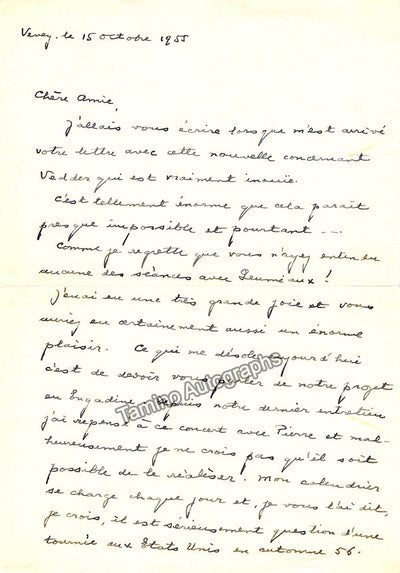 Vevey. le 15 octobre 1955
Chère Amie,
J'allais vous écrire lorsque m'est arrivé
votre lettre avec cette nouvelle concernant
Vedder qui est vraiment inouïe.
C'est tellement énorme que cela paraît
presque impossible et pourtant ...
Comme je regrette que vous n'ayez entendu
aucune des séances avec !
J'en ai eu une très grande joie et vous
auriez eu certainement aussi un énorme
plaisir. Ce qui me désole aujourd'hui
c'est de devoir vous parler de notre projet
en Engadine. Depuis notre dernier entretien
j'ai repensé à ce concert avec Pierre et mal-
heureusement je ne crois pas qu'il soit
possible de le réaliser. Mon calendrier
se charge chaque jour et, je vous l'ai dit,
je crois, il est sérieusement question d'une
tournée aux Etats Unis en automne 56.
Tamino Autographs